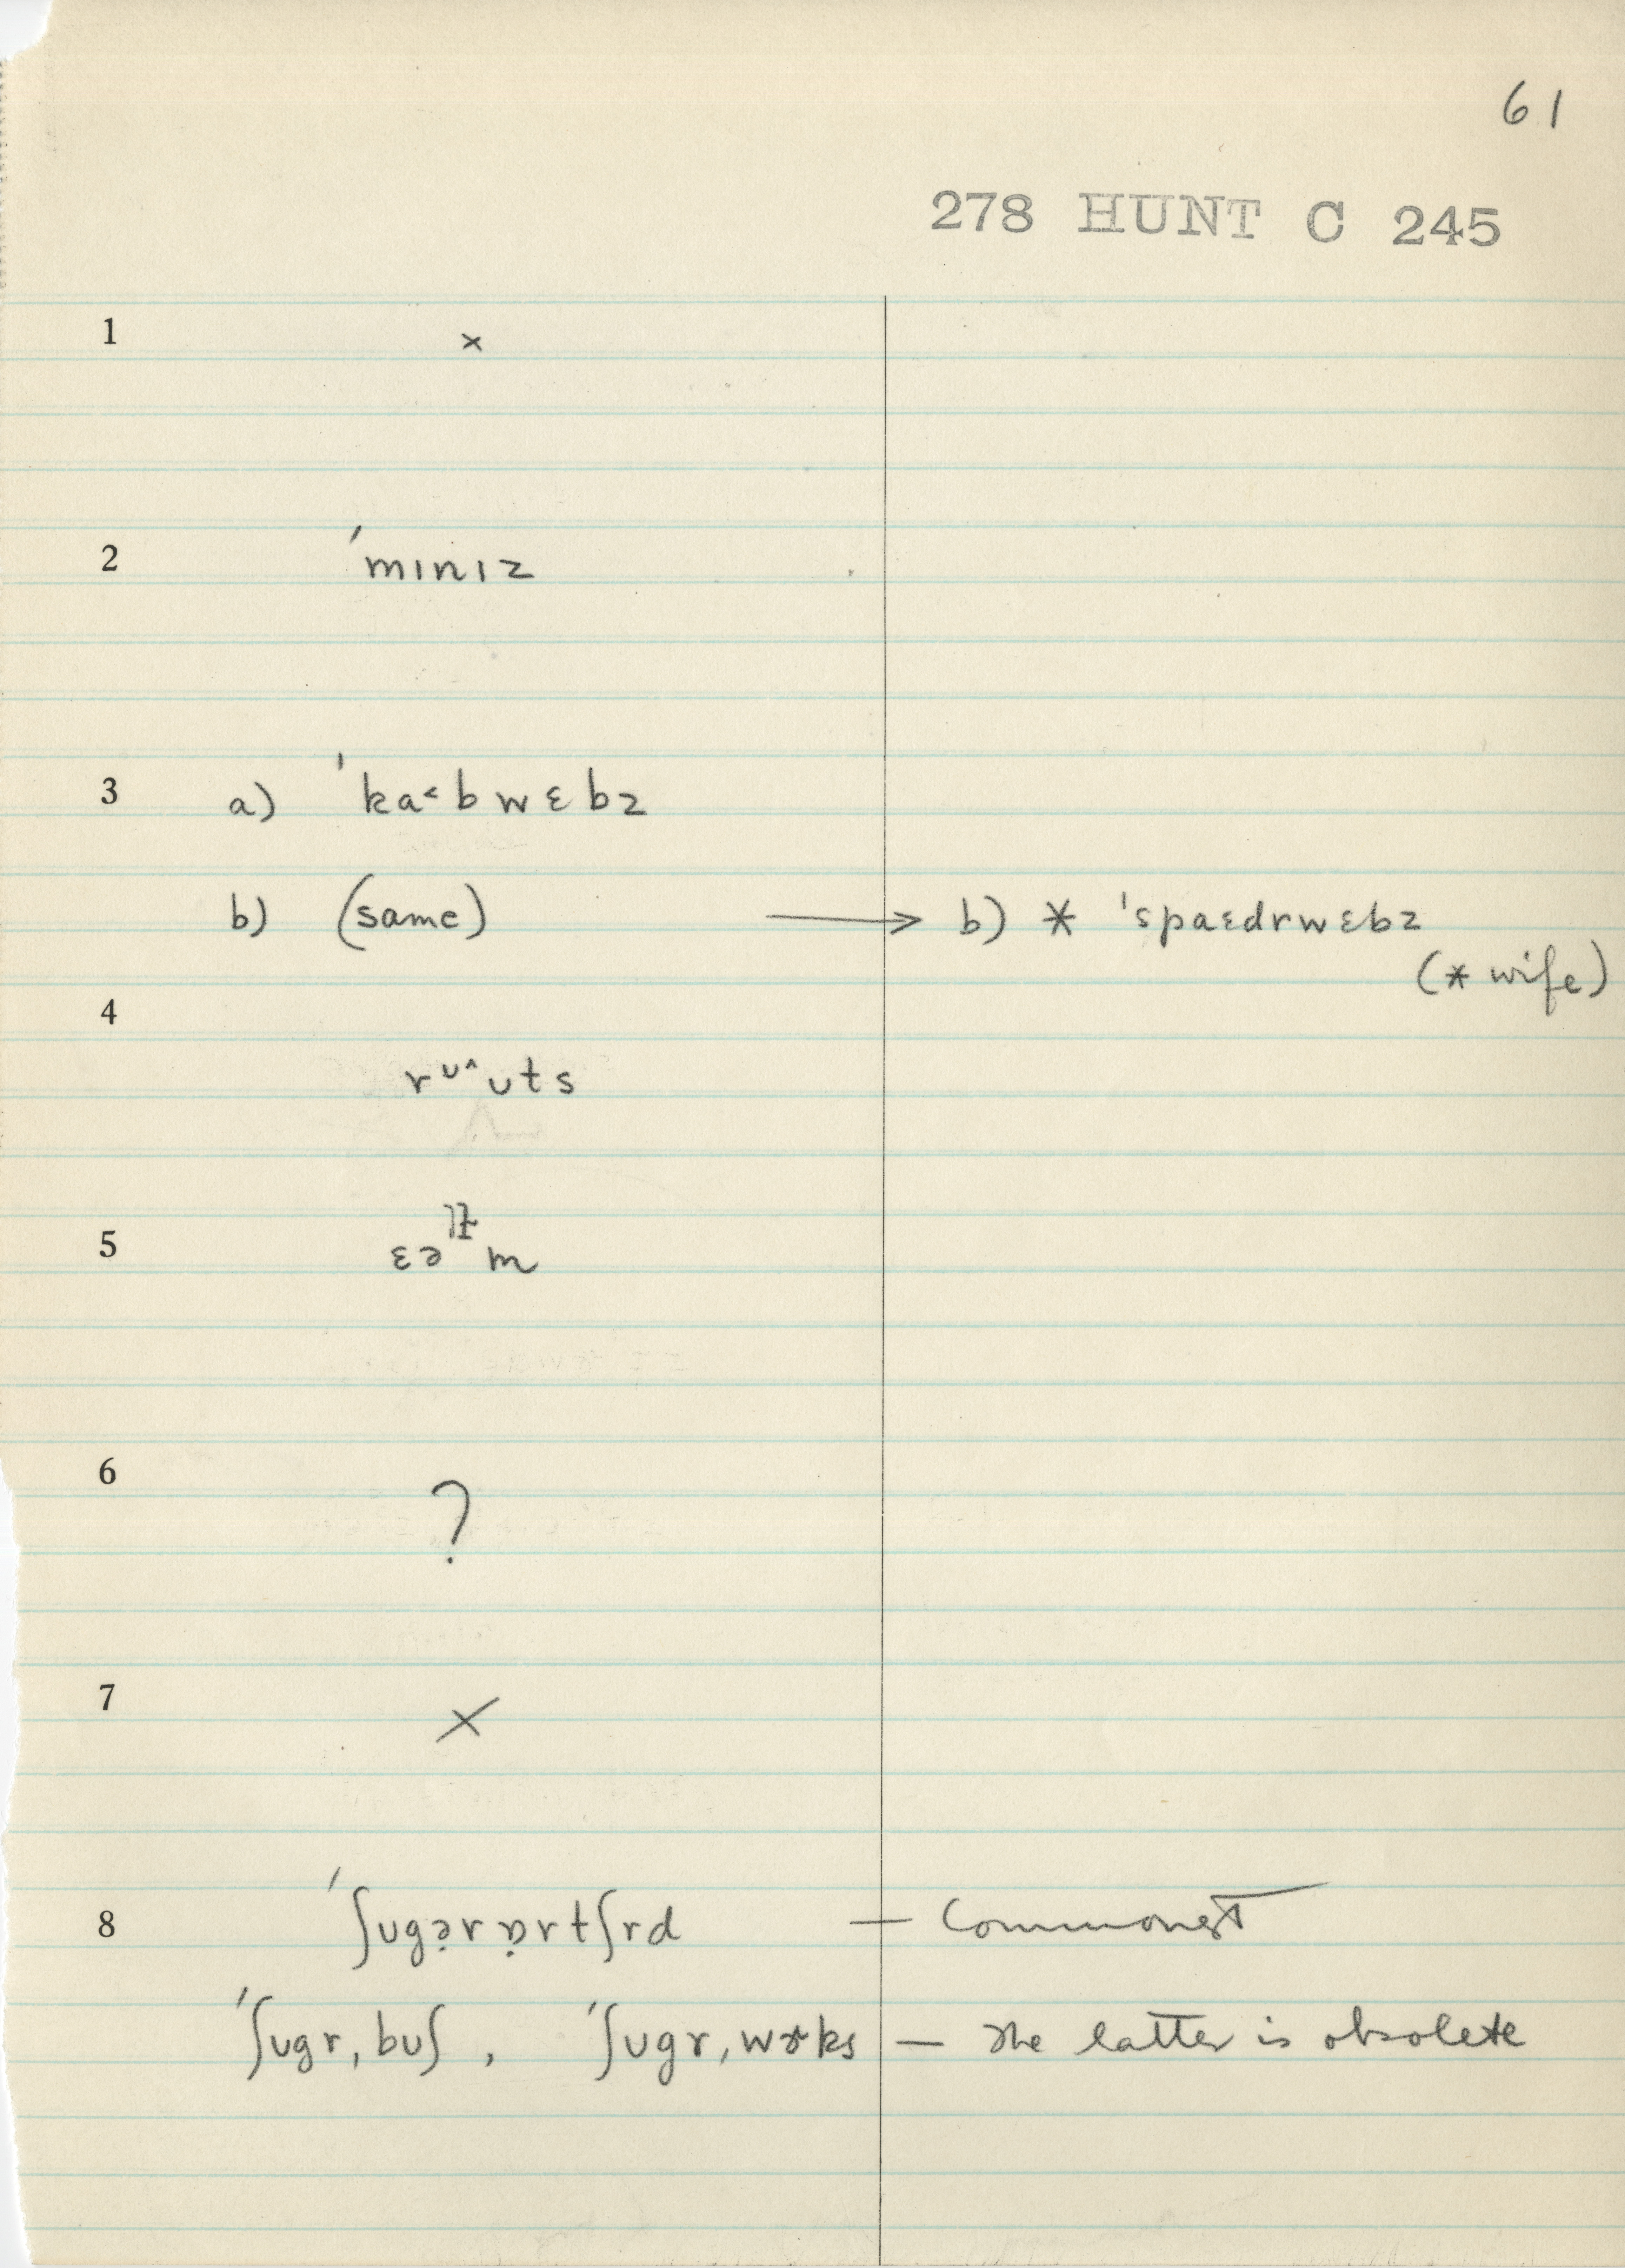 61
278 HUNT C 245
1 ×
2 ˈmɪnɪz
3 a) ˈka˂bwɛbz
b) (same) → b) * ˈspaɛdrwɛbz
(* wife)
4
rᴜ^ᴜts
5 ɛə m
6 ?
7 ×
8 ˈʃᴜgə̣rɒ̣rtʃrd — Commonest
ˈʃᴜgrˌbᴜʃ , ˈʃᴜgrˌwɝks — The latter is obsolete